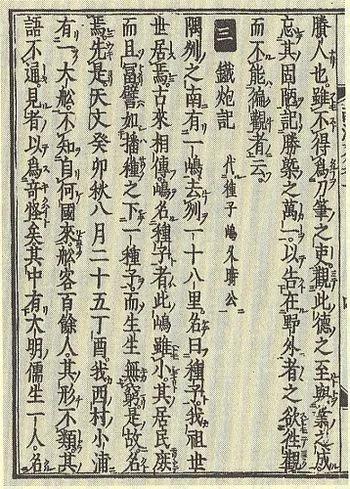 勝人也雖不得為刀筆之吏觀此德之至與義之成
忘其固陋記勝槩之萬一以告在野外者之欲徃觀
而不能徧觀者云
三 鐵炮記 代種子嶋久時公
隅州之南有一嶋去州一十八里名曰種子我祖世
世居焉古來相傳嶋名種子者此嶋雖小其居民庶
而且冨譬如播種之下一種子而生生無窮是故名
焉先是天文癸卯秋八月二十五丁酉我西村小浦
有一大舩不知自何國來舩客百餘人其形不類其
語不通見者以為奇怪矣其中有大明儒生一人名